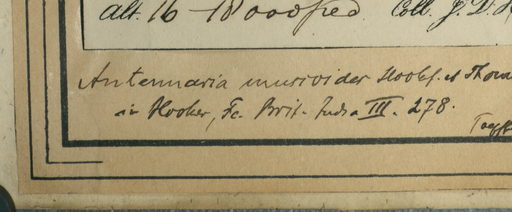 alt. 16-18000 feed Coll. J. D. H
Antennaria muscoides Hook f. et Thom
in Hooker, Fl. Brit. India III. 278.